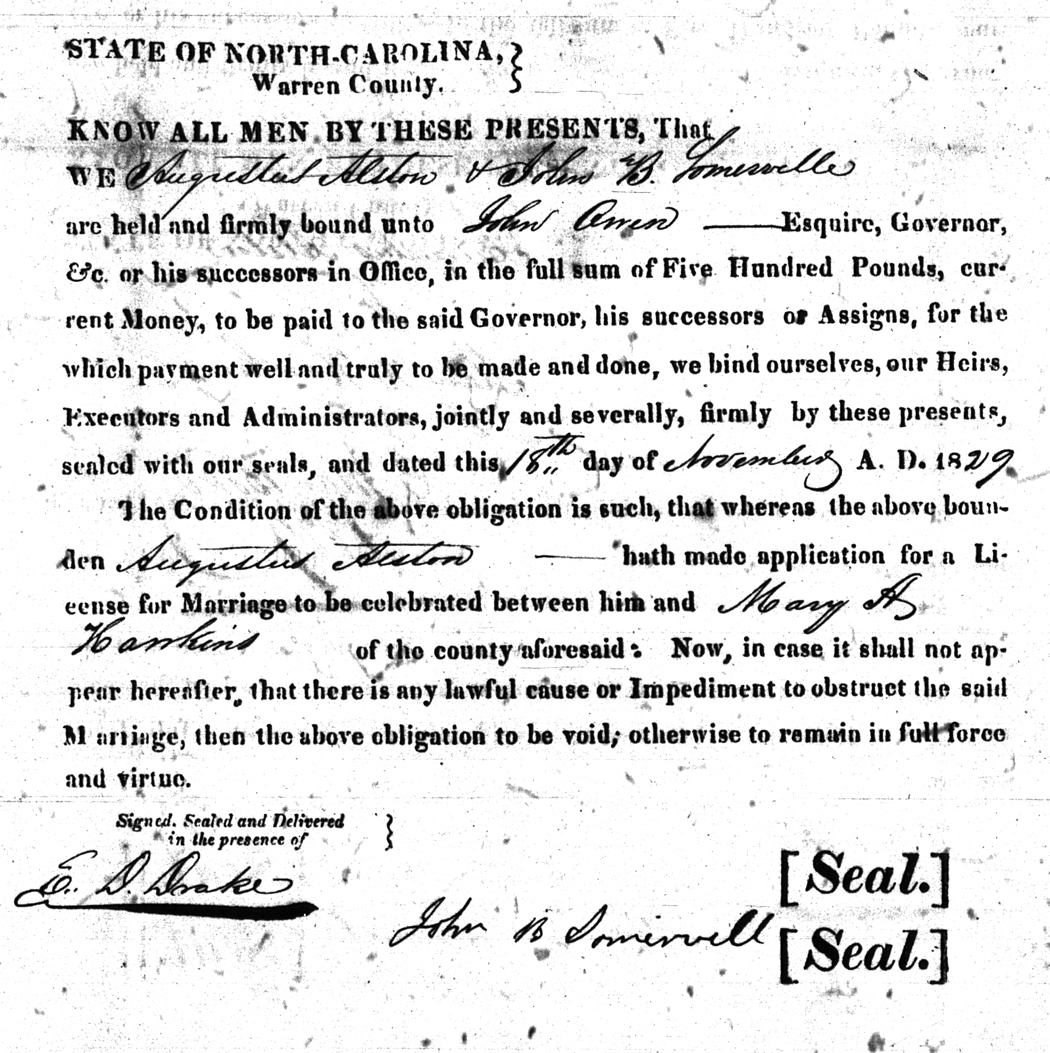 STATE OF NORTH-CAROLINA, }
Warren County.
KNOW ALL MEN BY THESE PRESENTS, That
WE Augustus Alston & John B. Somerville
are held and firmly bound unto John Owen Esquire, Governor,
&c. or his successors in Office, in the full sum of Five Hundred Pounds, cur-
rent Money, to be paid to the said Governor, his successors or Assigns, for the
which payment well and truly to be made and done, we bind ourselves, our Heirs,
Executors and Administrators, jointly and severally, firmly by these presents,
sealed with our seals, and dated this 18th day of November A. D. 1829
The Condition of the above obligation is such, that whereas the above boun-
den Augustus Alston hath made application for a Li-
cense for Marriage to be celebrated between him and Mary A
Hawkins of the county aforesaid: Now, in case it shall not ap-
pear hereafter, that there is any lawful cause or Impediment to obstruct the said
Marriage, then the above obligation to be void; otherwise to remain in full force
and virtue.
Signed, Sealed and Delivered }
in the presence of
E. D. Drake
[Seal.]
John B Somervell [Seal.]